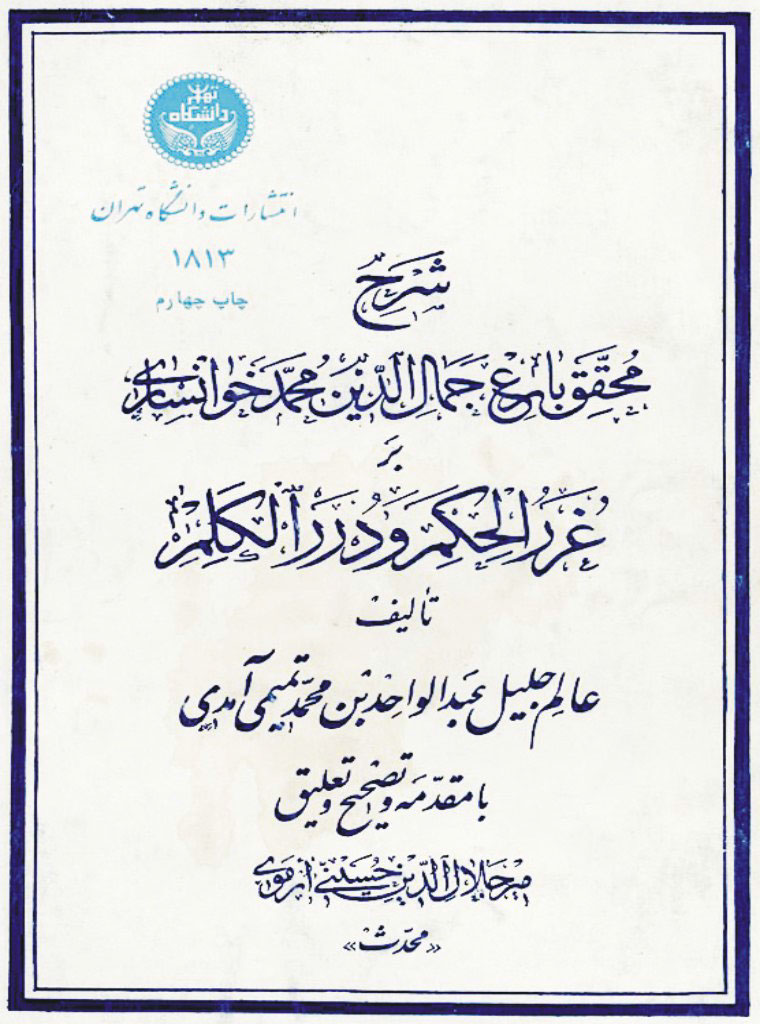 تهران
دانشگاه
انتشارات دانشگاه تهران
۱۸۱۳
چاپ چهارم
شَرحُ
مُحَقِّق بارِع جَمالُ الدّین مُحمَّد خوانساری
بَر
غُرَرُ الحِکَم وَ دُرَرُ الکَلِم
تألیف
عالم جلیل عبدالواحد بن محمّد تمیمی آمدی
با مقدّمه و تصحیح و تعلیق
میر جلال الدّین حسینی ارموی
«محدّث»